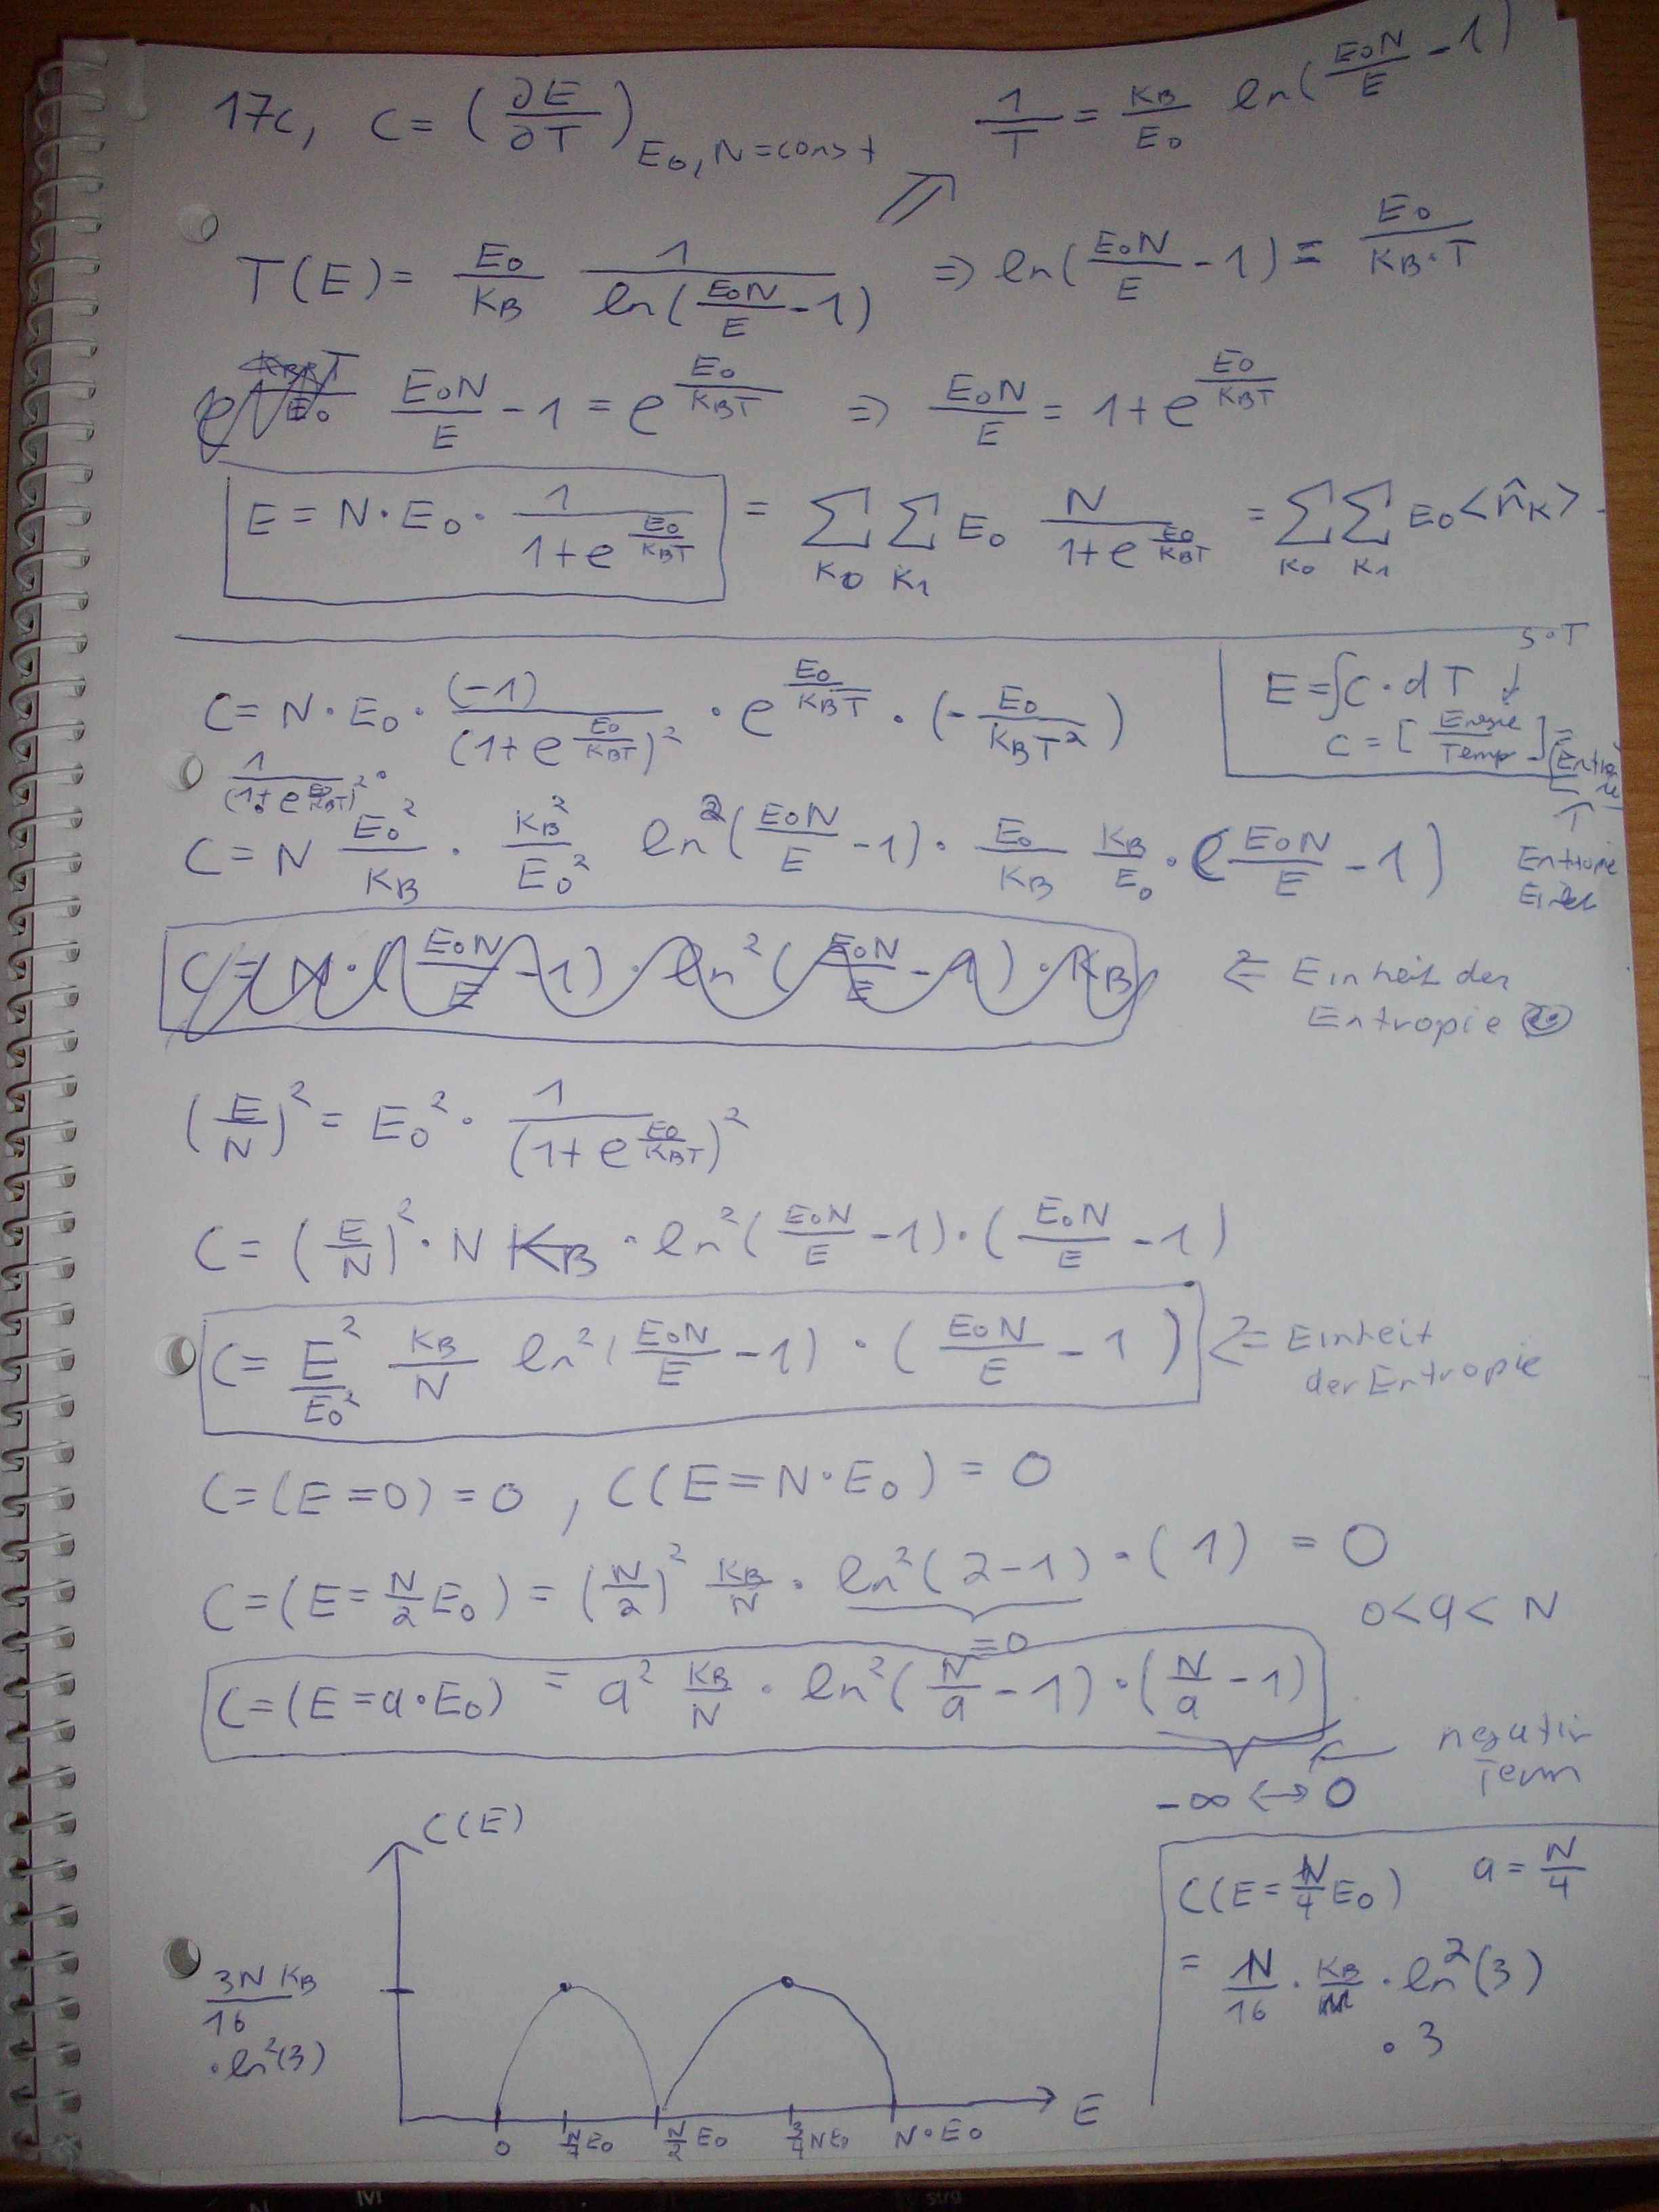 17c, C = (∂E/∂T)_{E₀, N=const}    1/T = K_B/E₀ ln(E₀N/E - 1)
T(E) = E₀/K_B 1/ln(E₀N/E - 1) ⇒ ln(E₀N/E - 1) = E₀/(K_B·T)
E₀N/E - 1 = e^{E₀/K_BT} ⇒ E₀N/E = 1 + e^{E₀/K_BT}
E = N·E₀· 1/(1 + e^{E₀/K_BT}) = Σ_{K₀} Σ_{K₁} E₀ N/(1 + e^{E₀/K_BT}) = Σ_{K₀} Σ_{K₁} E₀ <n̂_K>
S·T
E = ∫C·dT ↓
C = [Energie/Temp] =
C = N·E₀· (-1)/(1 + e^{E₀/K_BT})² · e^{E₀/K_BT} · (- E₀/(K_BT²))
1/(1 + e^{E₀/K_BT})² ·
C = N E₀²/K_B · K_B²/E₀² ln²(E₀N/E - 1) · E₀/K_B K_B/E₀ · (E₀N/E - 1)
↑
Entropie
C = N·(E₀N/E - 1) · ln²(E₀N/E - 1) · K_B ⇐ Einheit der
Entropie
(E/N)² = E₀² · 1/(1 + e^{E₀/K_BT})²
C = (E/N)² · N K_B · ln²(E₀N/E - 1) · (E₀N/E - 1)
C = E²/E₀² K_B/N ln²(E₀N/E - 1) · (E₀N/E - 1) ⇐ Einheit
der Entropie
C = (E = 0) = 0 , C(E = N·E₀) = 0
C = (E = N/2 E₀) = (N/2)² K_B/N · ln²(2-1) · (1) = 0
= 0
0 < a < N
C = (E = a·E₀) = a² K_B/N · ln²(N/a - 1) · (N/a - 1)
-∞ ↔ 0 ← negativ
Term
C(E)
C(E = N/4 E₀) a = N/4
= N/16 · K_B · ln²(3)
· 3
3N K_B/16
· ln²(3)
0 N/4 E₀ N/2 E₀ 3/4 N E₀ N·E₀ E
strg